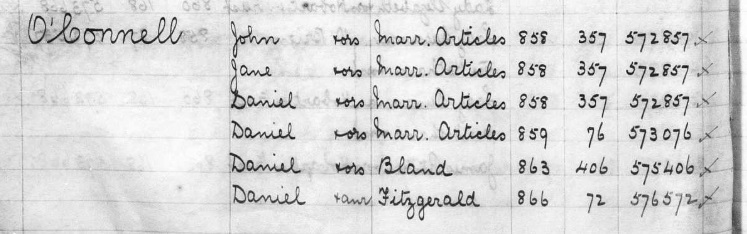 O'Connell John & ors Marr. Articles 858 357 572857
Jane & ors Marr. Articles 858 357 572857
Daniel & ors Marr. Articles 858 357 572857
Daniel & ors Marr. Articles 859 76 573076
Daniel & ors Bland 863 406 575406
Daniel & anr Fitzgerald 866 72 576572